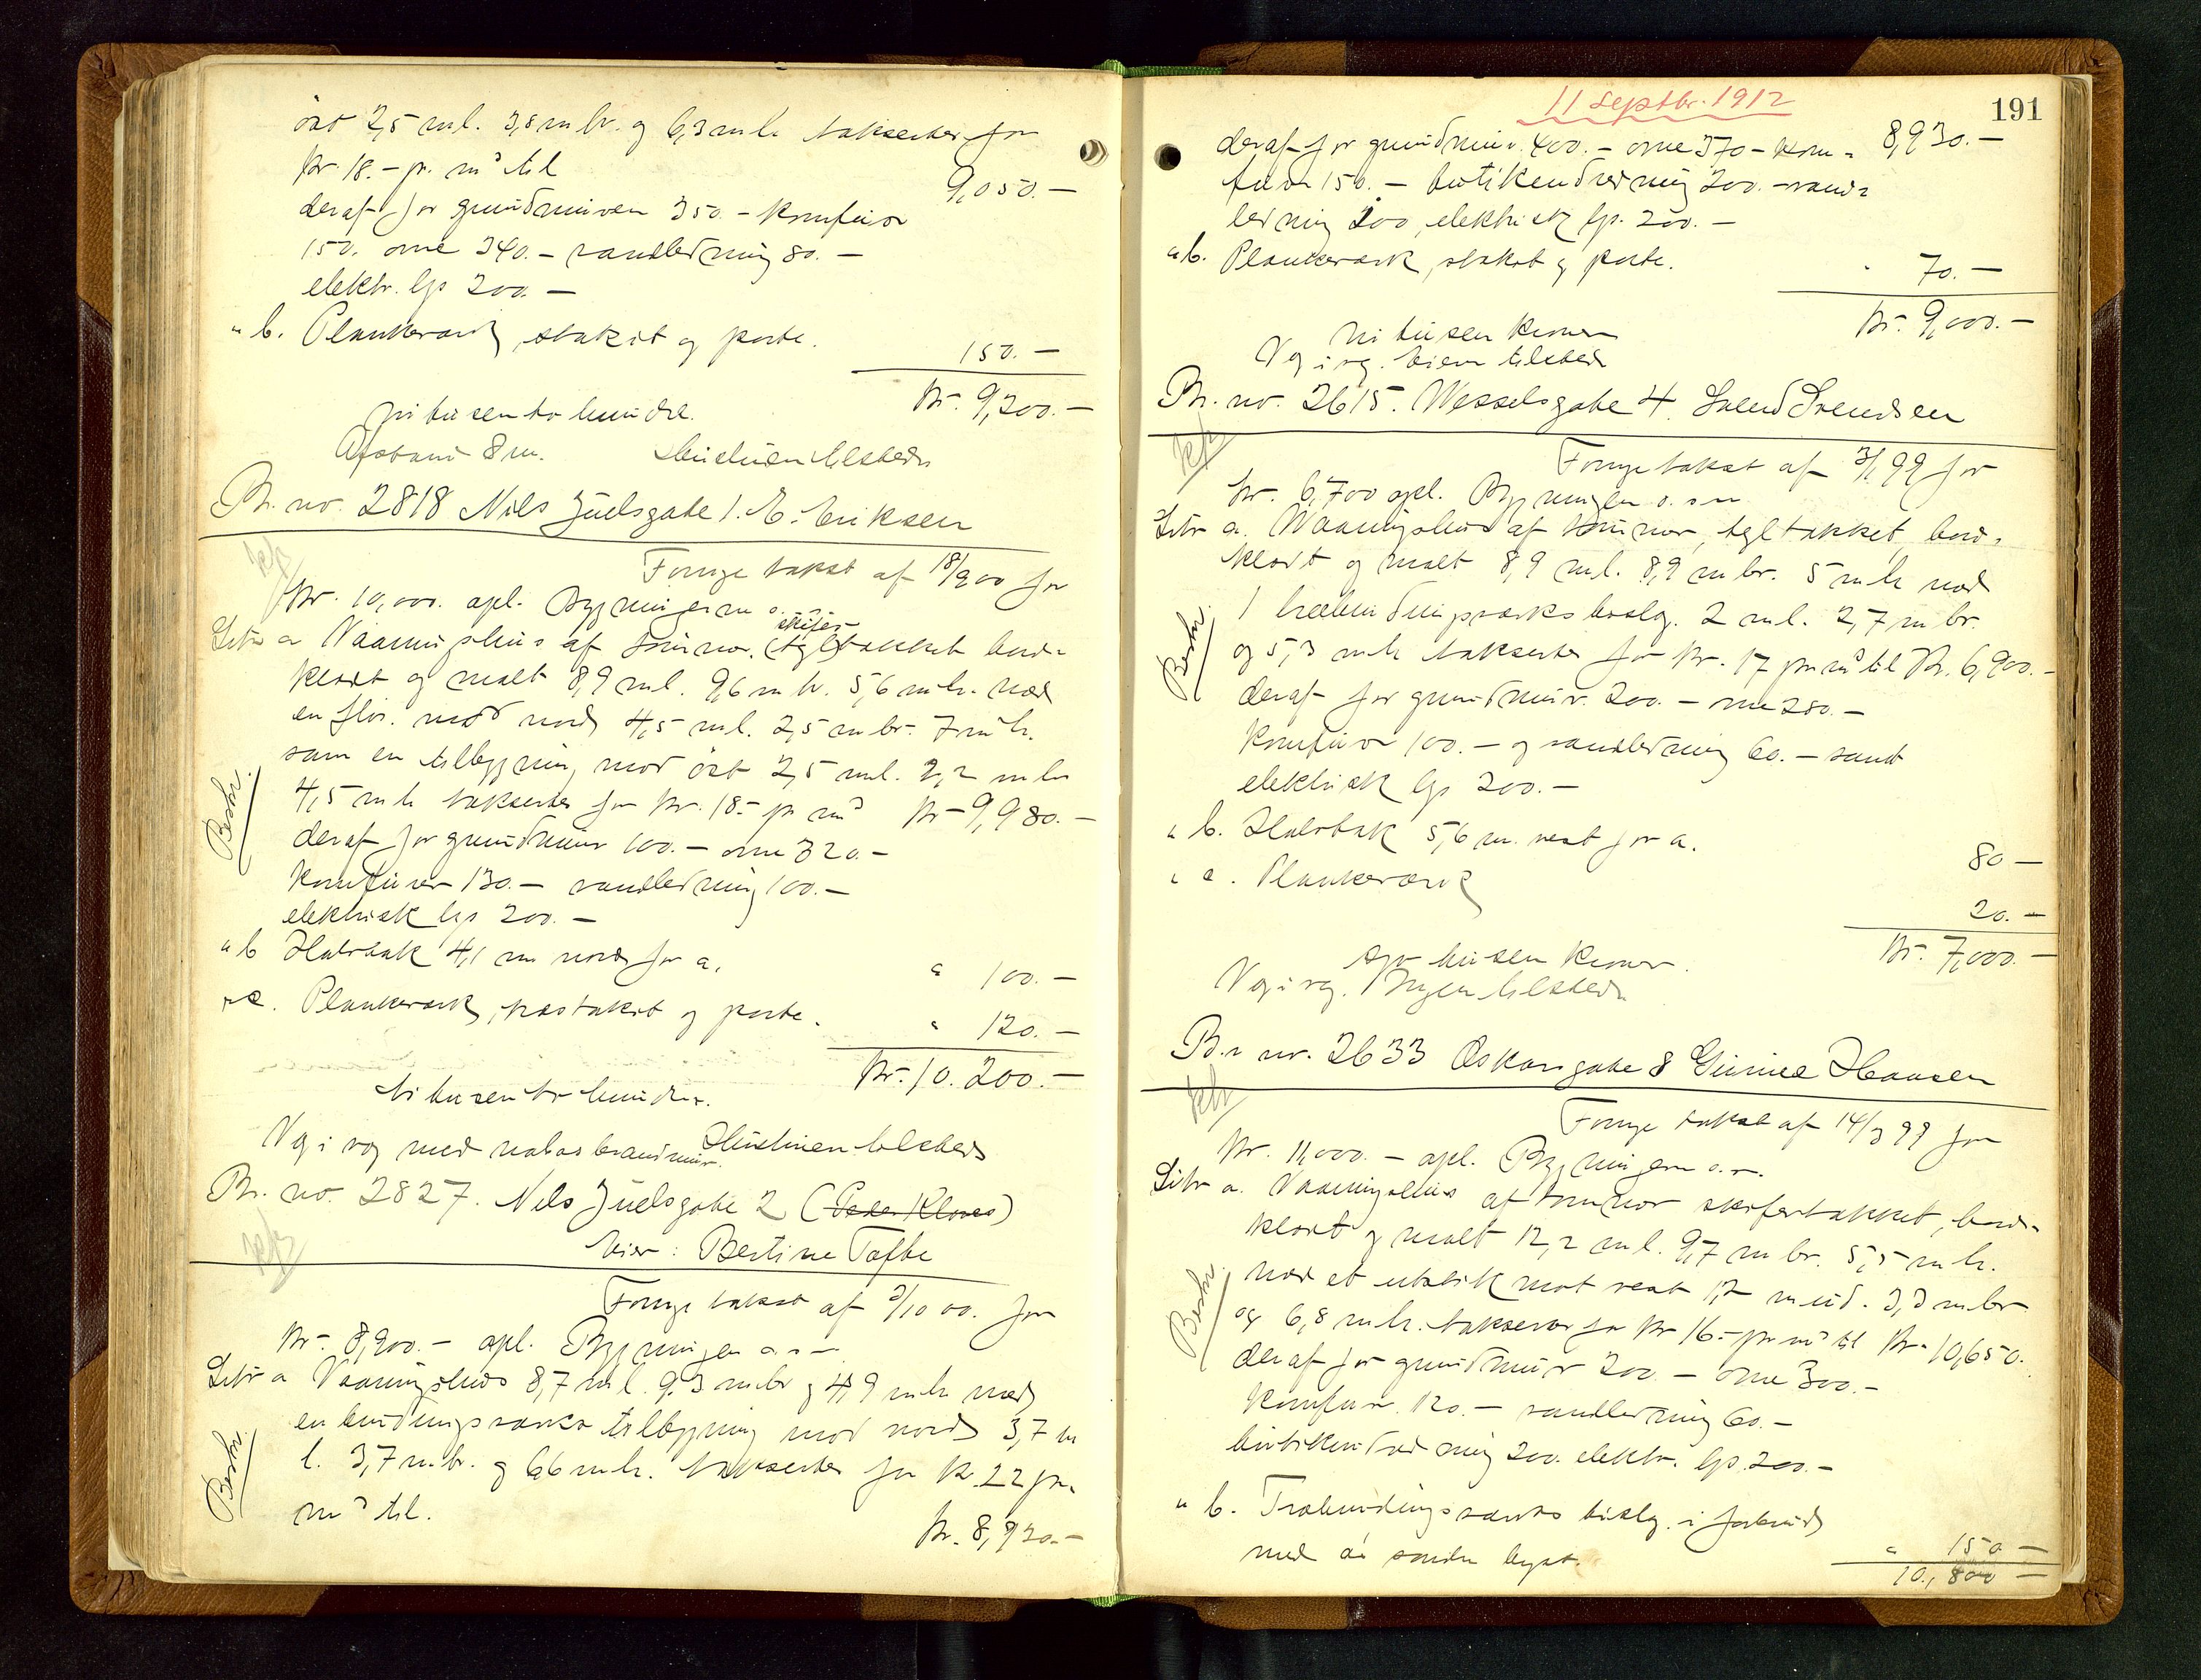 öst 2,5 m l. 3,8 m br. og 6,3 m h takseret for
Kr. 18.- pr. m³ til 9,050.-
deraf for grundmuren 350.- komfur
150. ovne 340.- vandledning 80.-
elektr. lys 200.-
" b. Plankeverk, stakit og porte. 150.-
Kr. 9,200.-
ni tusen to hundre.
Afstand 8 m. Hustruen tilstede
Br. no. 2818 Nils Juelsgate 1. E. Eriksen
Forrige takst af 18/9 00 for
Kr. 10,000. opl. Bygningerne s. s.
skifer
Litr a Vaaningshus af tømmer, (tegl) takket bord-
klædt og malt 8,9 m l. 9,6 m br. 5,6 m h. med
en fløi mod nord 4,5 m l. 2,5 m br. 7 m h.
samt en tilbygning mod öst 2,5 m l. 2,2 m br
4,5 m h takseret for Kr. 18.- pr m³ Kr 9,980.-
deraf for grundmur 100.- ovne 320.-
Komfurer 130.- vandledning 100.-
elektrisk lys 200.-
" b Halvtak 4,1 m nord for a. " 100.-
" c. Plankeverk, stakit og porte. " 120.-
Kr. 10.200.-
ti tusen to hundre.
Veg i veg med nabos brandmur. Hustruen tilstede
Br. no. 2827. Nils Juelsgate 2 (Peder Kloves)
Eier: Bertine Tofte
Forrige takst af 3/10 00. for
Kr. 8,900.- opl. Bygningen s. s.
Litr a Vaaningshus 8,7 m l. 9,3 m br og 4,9 m h med
en bindingsverks tilbygning mod nord 3,7 m
l. 3,7 m br. og 6,6 m h. takseret for Kr. 22 pr.
m³ til. Kr. 8,930.-
Beskr.
Beskr.
11 Septbr. 1912
191
deraf for grundmur. 400.- ovne 370- kom- 8,930.-
fur 150.- butikendredning 200.- vand-
ledning 200, elektrisk lys. 200.-
" b. Plankeverk, stakit og porte. " 70.-
Kr. 9,000.-
Ni tusen kroner
Veg i veg. Eieren tilstede
Br. no. 2615. Wesselsgate 4 Svend Svendsen
Forrige takst af 3/1 99 for
Kr. 6,700 opl. Bygningen s. s.
Litr a. Vaaningshus af tømmer, tegltakket, bord-
klædt og malt 8,9 m l. 8,9 m br. 5 m h med
1 træbindingsverks tilbyg. 2 m l. 2,7 m br.
og 5,3 m h takseret for Kr. 17 pr m³ til Kr. 6,900.-
deraf for grundmur. 200.- ovne 280.-
Komfur 100.- og vandledning 60.- samt
elektrisk lys 200.-
" b. Halvtak 5,6 m. vest for a. 80-
" c. Plankeverk 20.-
Kr. 7,000.-
syv tusen kroner.
Veg i veg. Ingen tilstede
Br. no. 2633 Oskarsgate 8 Gunnar Hansen
Forrige takst af 14/3 99 for
Kr. 11,000.- opl. Bygningerne s. s.
Litr a. Vaaningshus af tømmer skifertakket, bord-
klædt og malt 12,2 m l. 9,7 m br. 5,5 m h.
med et utstik mot vest 1,2 m ud. 3,3 m br
og 6,8 m h. takseres for Kr 16.- pr m³ til Kr. 10,650.
deraf for grundmur 200.- ovne 300.-
Komfur. 120.- vandledning 60.-
butikendredning 200. elektr. lys. 200.-
" b. Træbindingsverks tilbyg. i forbind
med a i söndre bygst. " 150-
10,800-
Beskr.
Beskr.